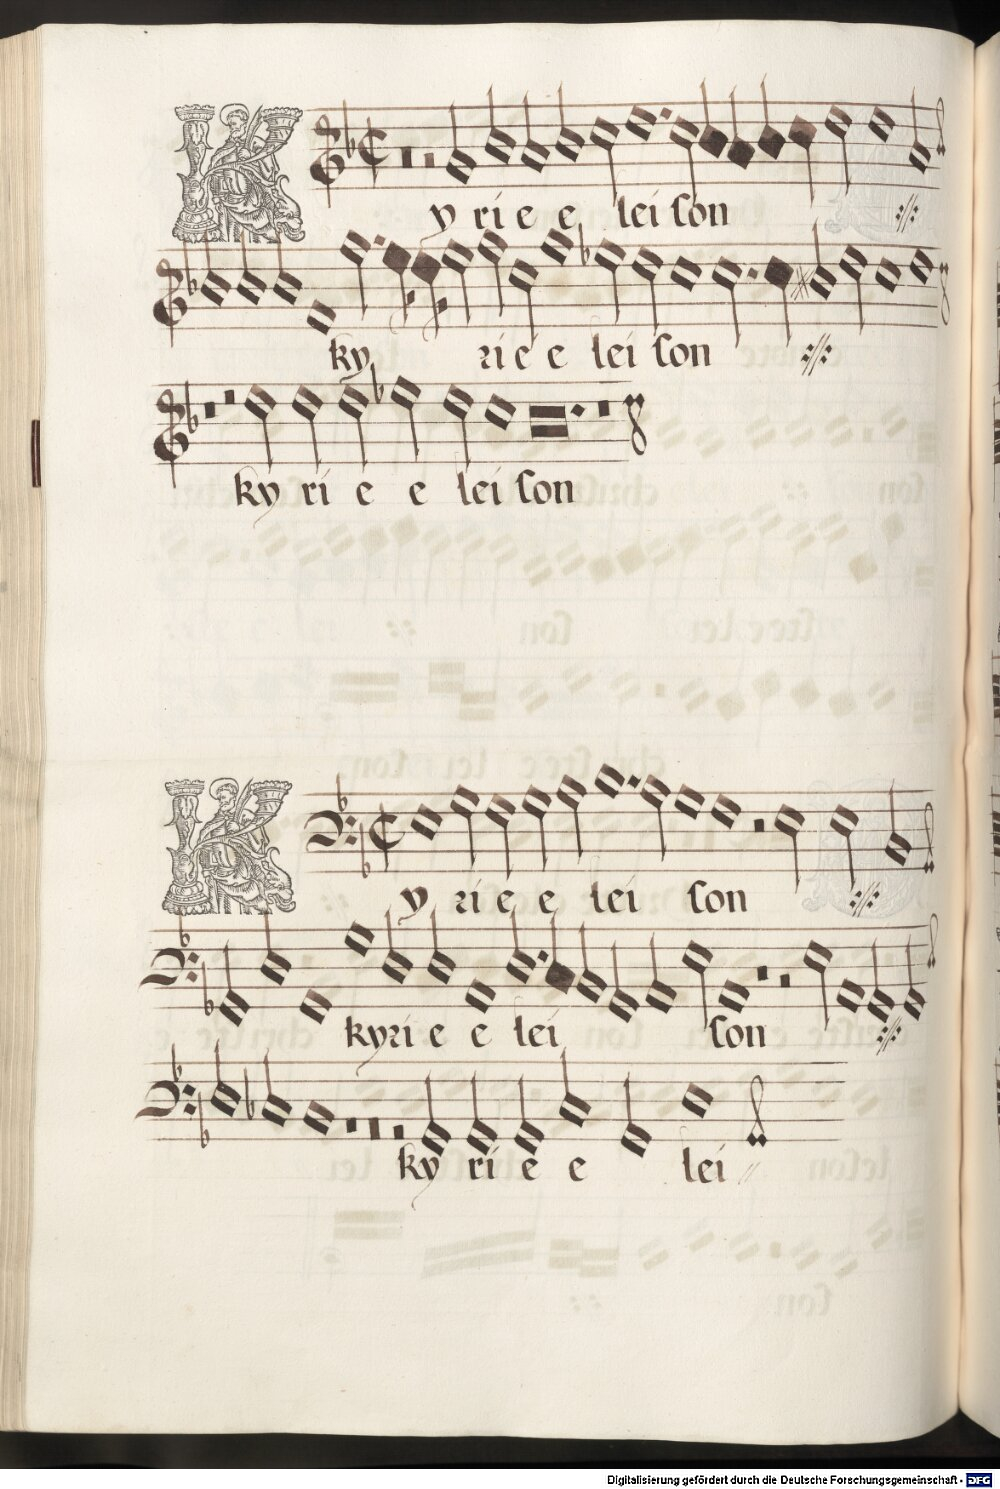 Ky ri e e lei son ://:
ky ri e e lei son ://:
ky ri e e lei son
Ky ri e e lei son ://:
ky ri e e lei son ://:
ky ri e e lei //
Digitalisierung gefördert durch die Deutsche Forschungsgemeinschaft - DFG